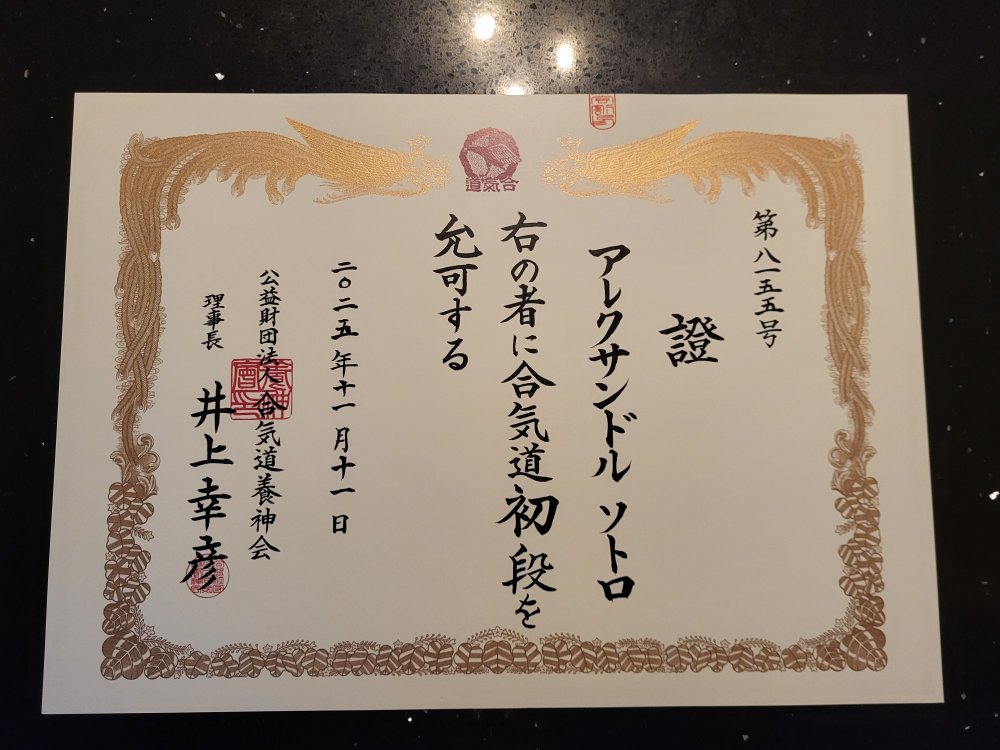 合氣道
第八一五五号
證
アレクサンドル ソトロ
右の者に合気道初段を
允可する
二〇二五年十一月十一日
公益財団法人合気道養神会
理事長 井上幸彦